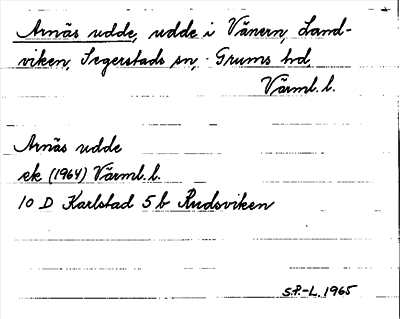 Arnäs udde, udde i Vänern, Sand-
viken, Segerstads sn, Grums hd,
Värml. l.
Arnäs udde
ek (1964) Värml. l.
10 D Karlstad 5 b Rudsviken
S.P.-L. 1965